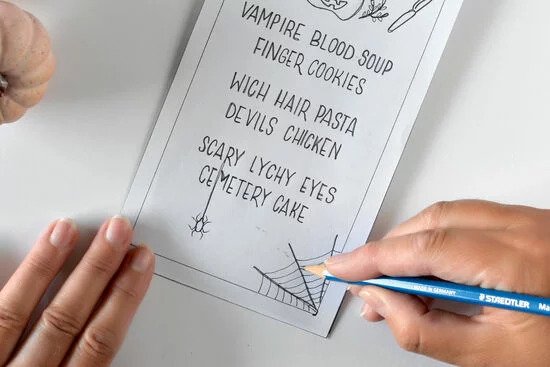 VAMPIRE BLOOD SOUP
FINGER COOKIES
WICH HAIR PASTA
DEVILS CHICKEN
SCARY LYCHY EYES
CEMETERY CAKE
MADE IN GERMANY
STAEDTLER